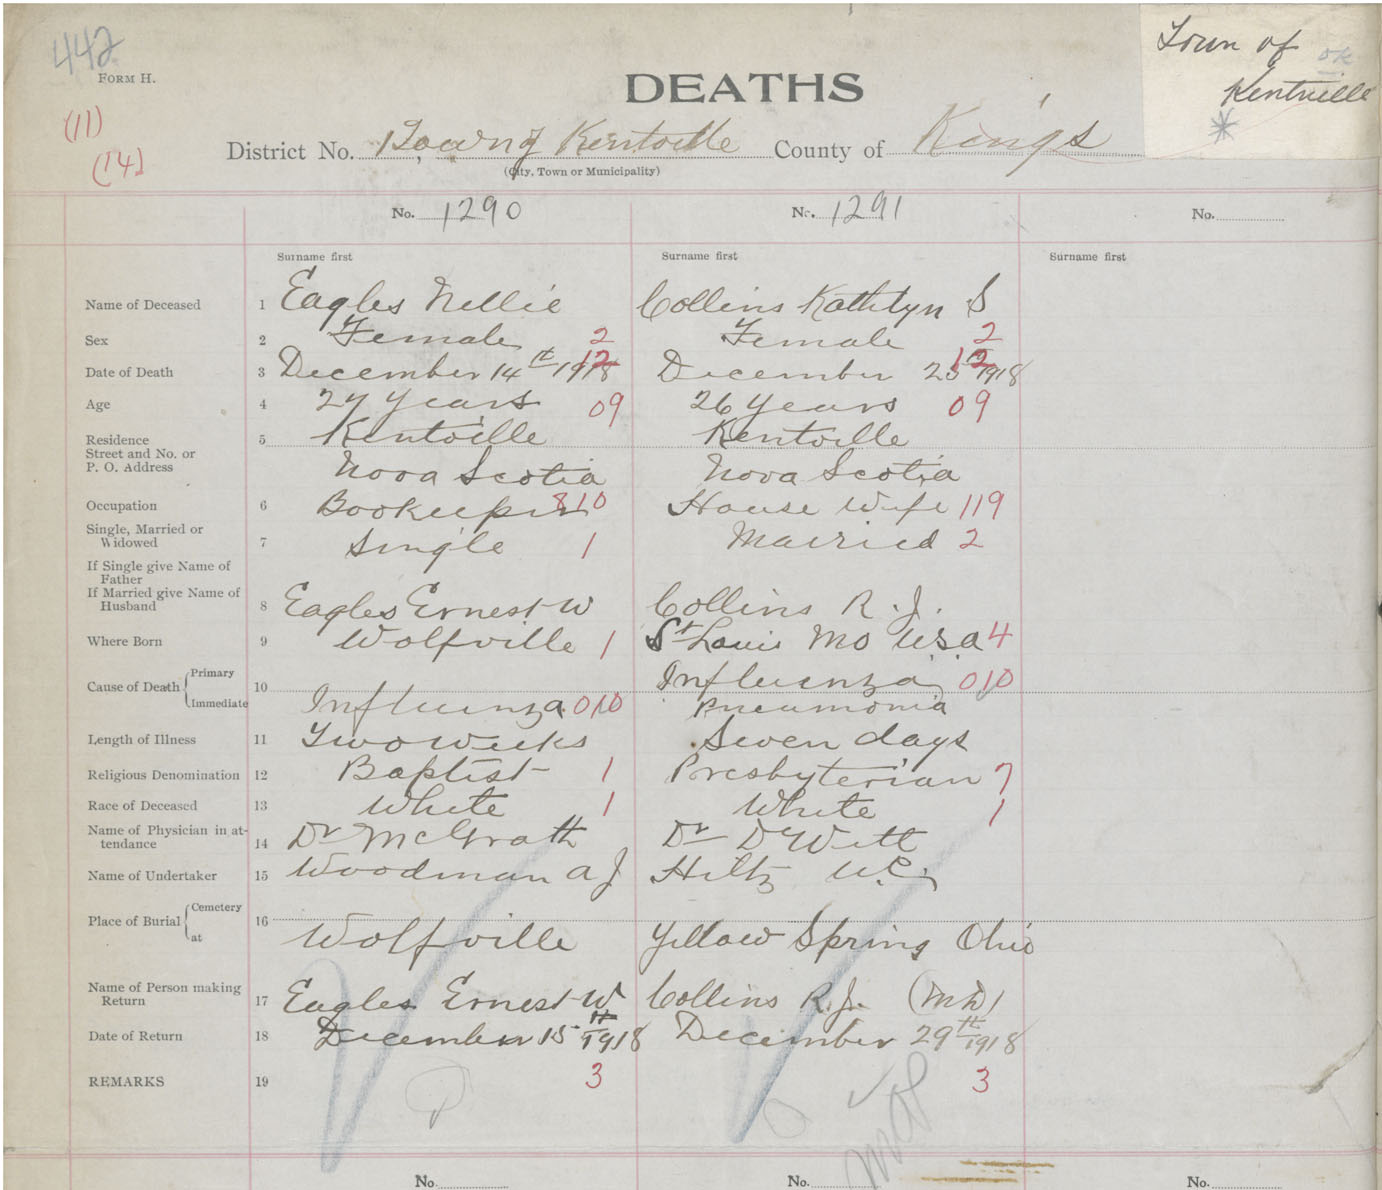 442
FORM H.
DEATHS
Town of ok
Kentville
(11)
(14)
District No. Town of Kentville County of Kings
(City, Town or Municipality)
No. 1290 No. 1291 No.
Surname first Surname first Surname first
Name of Deceased 1 Eagles Nellie Collins Kathlyn S
Sex 2 Female 2 Female 2
Date of Death 3 December 14th 1918 12 December 25th 1918 12
Age 4 27 Years 09 26 Years 09
Residence 5 Kentville Kentville
Street and No. or
P. O. Address Nova Scotia Nova Scotia
Occupation 6 Bookeeper 810 House Wife 119
Single, Married or
Widowed 7 Single 1 Married 2
If Single give Name of
Father
If Married give Name of
Husband 8 Eagles Ernest W Collins R. J.
Where Born 9 Wolfville 1 St Louis Mo U.S.a 4
Primary Influenza 010
Cause of Death 10
Immediate Influenza 010 Pneumonia
Length of Illness 11 Two weeks Seven days
Religious Denomination 12 Baptist 1 Presbyterian 7
Race of Deceased 13 White 1 White 1
Name of Physician in at-
tendance 14 Dr McGrath Dr DeWitt
Name of Undertaker 15 Woodman A J Hiltz W.C.
Cemetery
Place of Burial 16
at Wolfville Yellow Spring Ohio
Name of Person making
Return 17 Eagles Ernest W Collins R.J. (MD)
Date of Return 18 December 15th 1918 December 29th 1918
REMARKS 19 3 3
No. No. No.